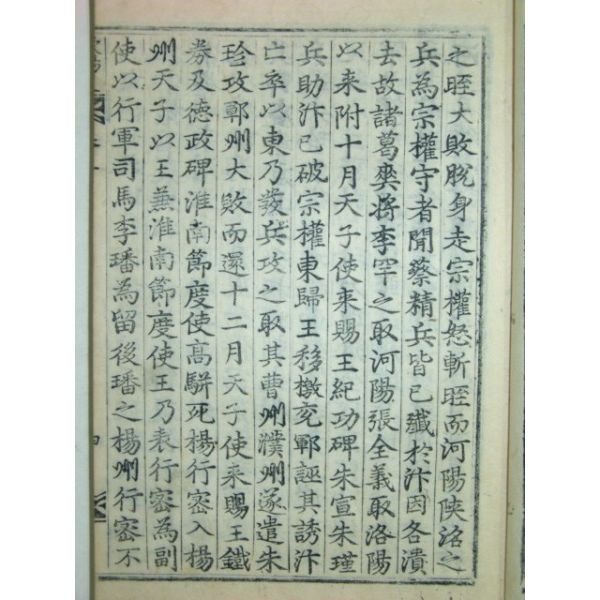 之晊大敗脫身走宗權怒斬晊而河陽陜洛之
兵為宗權守者聞蔡精兵皆已殲於汴因各潰
去故諸葛爽將李罕之取河陽張全義取洛陽
以来附十月天子使来賜王紀功碑朱宣朱瑾
兵助汴已破宗權東歸王移檄兗鄆誣其誘汴
亡卒以東乃發兵攻之取其曹州濮州遂遣朱
珍攻鄆州大敗而還十二月天子使来賜王鐵
券及德政碑淮南節度使高駢死楊行密入楊
州天子以王兼淮南節度使王乃表行密為副
使以行軍司馬李璠為留後璠之楊州行密不
四